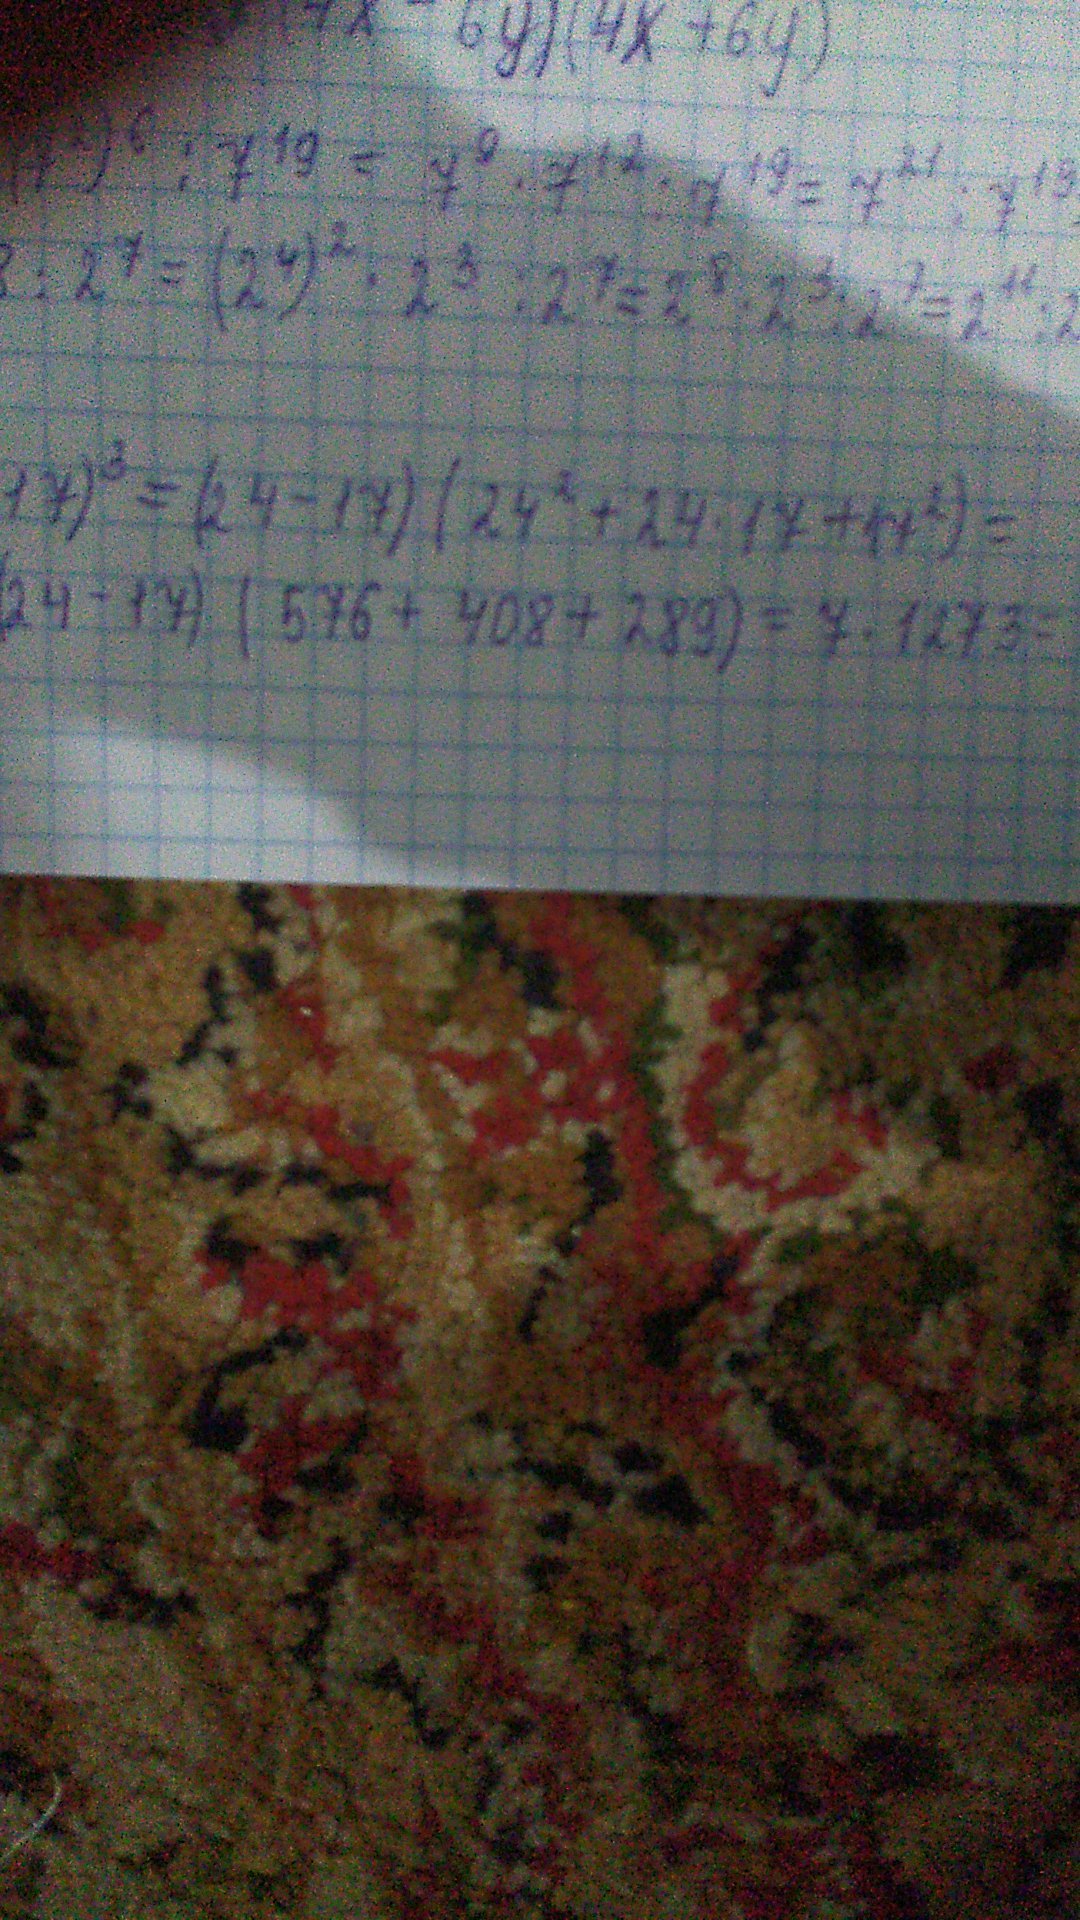 (4x - 6y)(4x + 6y)
(7²)⁶ : 7¹⁹ = 7⁹ · 7¹² : 7¹⁹ = 7²¹ : 7¹⁹
8 : 2⁷ = (2⁴)² · 2³ : 2⁷ = 2⁸ · 2³ : 2⁷ = 2¹¹ : 2
17)³ = (24 - 17)(24² + 24 · 17 + 17²) =
(24 - 17)(576 + 408 + 289) = 7 · 1273 =